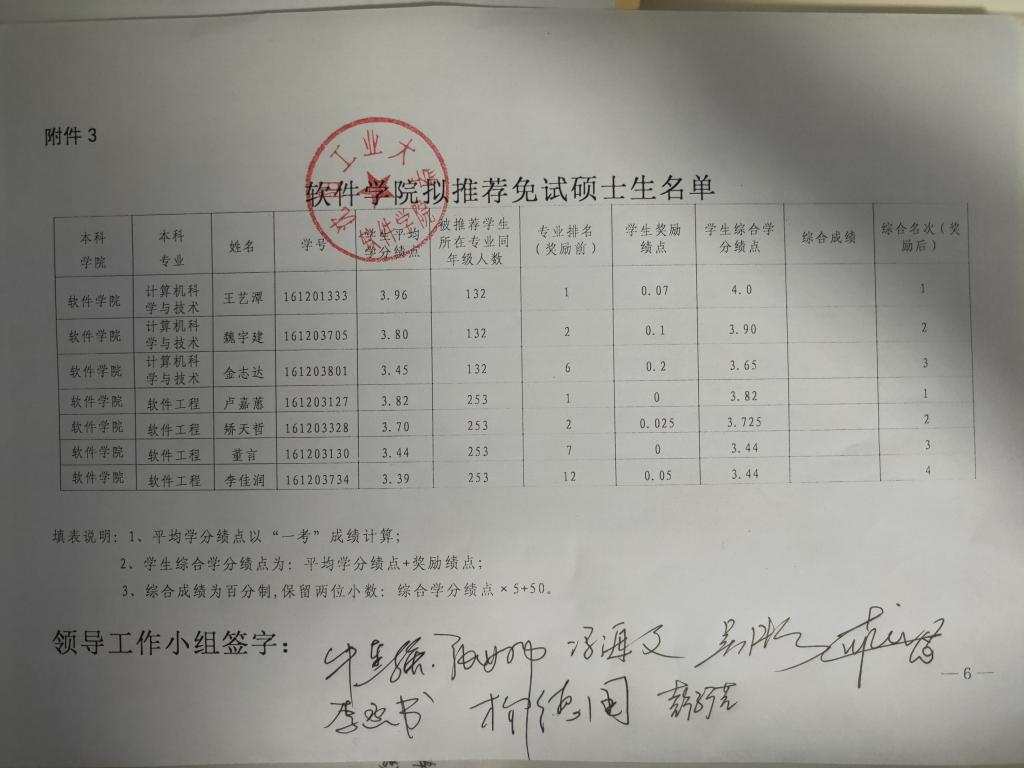 附件 3
工业大
软件学院
软件学院拟推荐免试硕士生名单
本科学院 本科专业 姓名 学号 学生平均学分绩点 被推荐学生所在专业同年级人数 专业排名（奖励前） 学生奖励绩点 学生综合学分绩点 综合成绩 综合名次（奖励后）
软件学院 计算机科学与技术 王艺潭 161201333 3.96 132 1 0.07 4.0 1
软件学院 计算机科学与技术 魏宇建 161203705 3.80 132 2 0.1 3.90 2
软件学院 计算机科学与技术 金志达 161203801 3.45 132 6 0.2 3.65 3
软件学院 软件工程 卢嘉蕙 161203127 3.82 253 1 0 3.82 1
软件学院 软件工程 矫天哲 161203328 3.70 253 2 0.025 3.725 2
软件学院 软件工程 董言 161203130 3.44 253 7 0 3.44 3
软件学院 软件工程 李佳润 161203734 3.39 253 12 0.05 3.44 4
填表说明：1、平均学分绩点以“一考”成绩计算；
2、学生综合学分绩点为：平均学分绩点+奖励绩点；
3、综合成绩为百分制，保留两位小数：综合学分绩点×5+50。
领导工作小组签字：
—6—